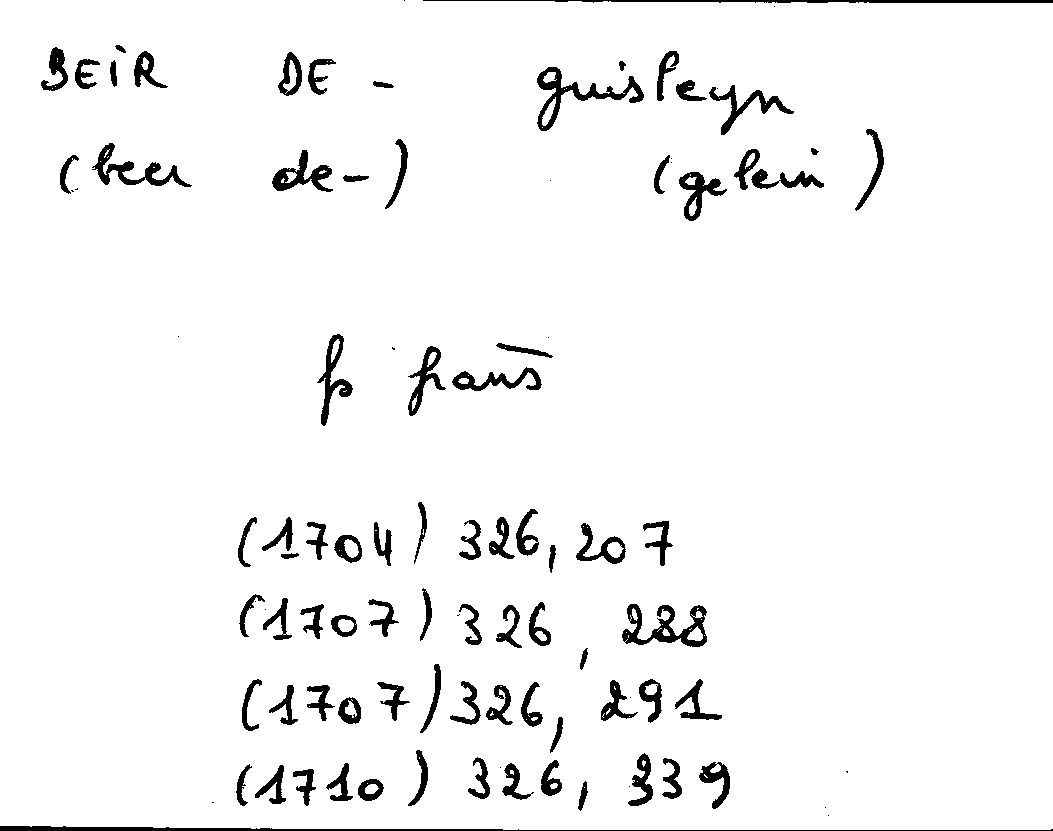 BEIR DE - guisleyn
(beer de-) (gelein)
fs frans̄
(1704) 326, 207
(1707) 326, 288
(1707) 326, 291
(1710) 326, 339